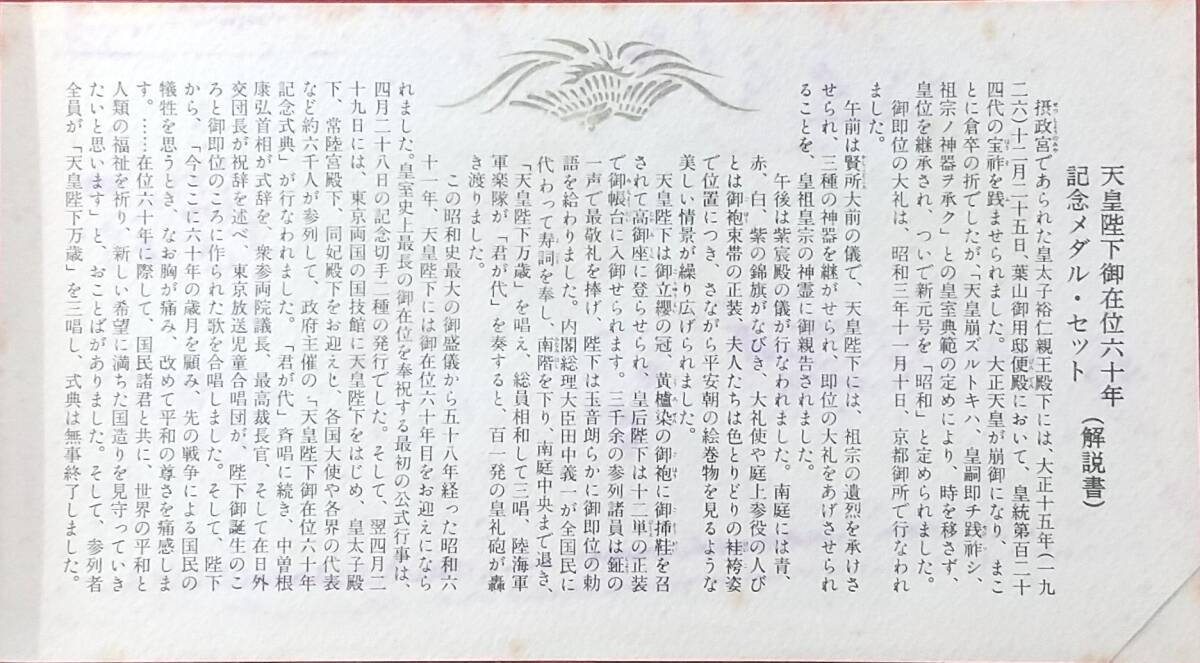 天皇陛下御在位六十年
記念メダル・セット
(解説書)
摂政宮であられた皇太子裕仁親王殿下には、大正十五年(一九
二六)十二月二十五日、葉山御用邸便殿において、皇統第百二十
四代の宝祚を践ませられました。大正天皇が崩御になり、まこ
とに倉卒の折でしたが「天皇崩ズルトキハ、皇嗣即チ践祚シ、
祖宗ノ神器ヲ承ク」との皇室典範の定めにより、時を移さず、
皇位を継承され、ついで新元号を「昭和」と定められました。
御即位の大礼は、昭和三年十一月十日、京都御所で行なわれ
ました。
午前は賢所大前の儀で、天皇陛下には、祖宗の遺烈を承けさ
せられ、三種の神器を継がせられ、即位の大礼をあげさせられ
ることを、皇祖皇宗の神霊に御親告されました。
午後は紫宸殿の儀が行なわれました。南庭には青、
赤、白、紫の錦旗がなびき、大礼使や庭上参役の人び
とは御袍束帯の正装、夫人たちは色とりどりの袿袴姿
で位置につき、さながら平安朝の絵巻物を見るような
美しい情景が繰り広げられました。
天皇陛下は御立纓の冠、黄櫨染の御袍に御挿鞋を召
されて高御座に登らせられ、皇后陛下は十二単の正装
で御帳台に入御せられます。三千余の参列諸員は鉦の
一声で最敬礼を捧げ、陛下は玉音朗らかに御即位の勅
語を給わりました。内閣総理大臣田中義一が全国民に
代わって寿詞を奉し、南階を下り、南庭中央まで退き、
「天皇陛下万歳」を唱え、総員相和して三唱、陸海軍
軍楽隊が「君が代」を奏すると、百一発の皇礼砲が轟
き渡りました。
この昭和史最大の御盛儀から五十八年経った昭和六
十一年、天皇陛下には御在位六十年目をお迎えになら
れました。皇室史上最長の御在位を奉祝する最初の公式行事は、
四月二十八日の記念切手二種の発行でした。そして、翌四月二
十九日には、東京両国の国技館に天皇陛下をはじめ、皇太子殿
下、常陸宮殿下、同妃殿下をお迎えし、各国大使や各界の代表
など約六千人が参列して、政府主催の「天皇陛下御在位六十年
記念式典」が行なわれました。「君が代」斉唱に続き、中曽根
康弘首相が式辞を、衆参両院議長、最高裁長官、そして在日外
交団長が祝辞を述べ、東京放送児童合唱団が、陛下御誕生のこ
ろと御即位のころに作られた歌を合唱しました。そして、陛下
から、「今ここに六十年の歳月を顧み、先の戦争による国民の
犠牲を思うとき、なお胸が痛み、改めて平和の尊さを痛感しま
す。……在位六十年に際して、国民諸君と共に、世界の平和と
人類の福祉を祈り、新しい希望に満ちた国造りを見守っていき
たいと思います」と、おことばがありました。そして、参列者
全員が「天皇陛下万歳」を三唱し、式典は無事終了しました。